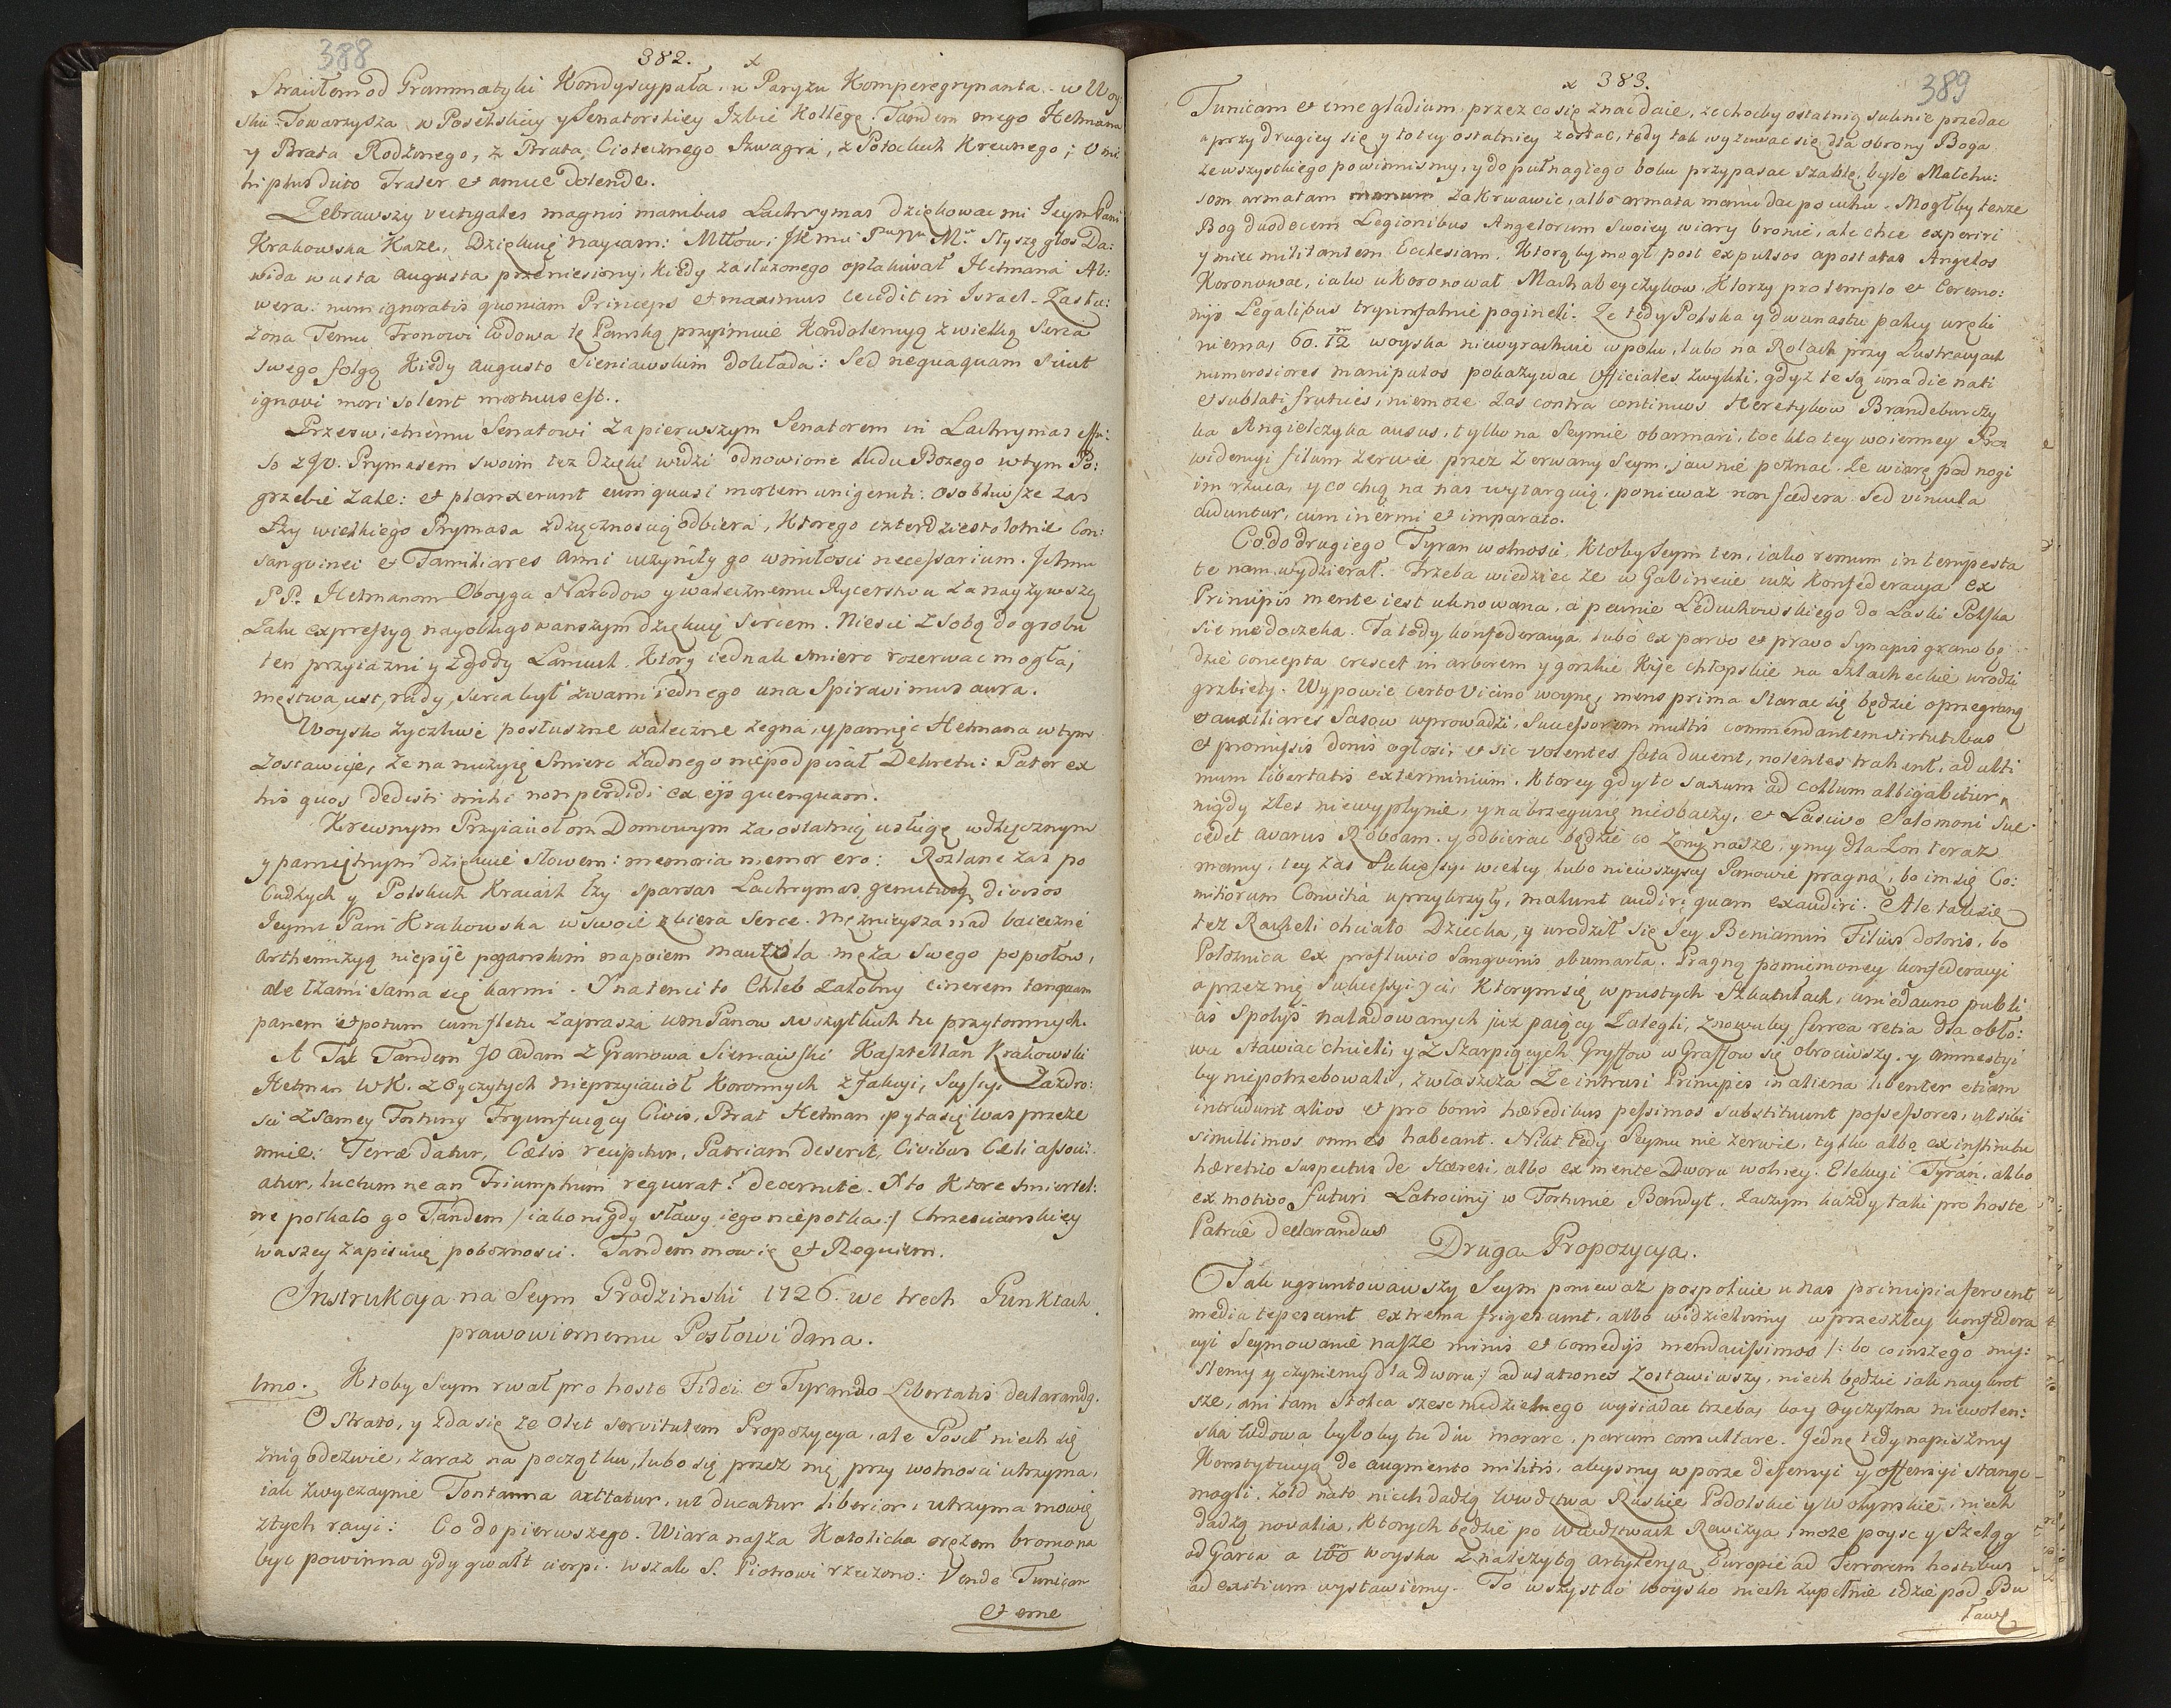 388
382.
Straiłem od Grammatyki Kondyscypała, w Paryżu Komperegrynanta, w Woy
sku Towarzysza w Poselskiey y Senatorskiey Izbie Kollegę. Tandem mego Hetmana
y Brata Rodzonego, z Brata Ciotecznego Szwagra, z Potockich Krewnego; O mi
hi plus duto Frater et amice dolende.
Zebrawszy vectigales magnis manibus Lachrymas dziękować mi Jeym Pani
Krakowska Każe, Dziękuię nayiam: Mttow: Słyszę głos Da:
wida w usta Augusta przeniesiony, kiedy zasłużonego opłakiwał Hetmana Ab:
nera: num ignoratis quoniam Princeps et maximus cecidit in Israel. Zasłu:
żona Temu Tronowi Wdowa tę Pańską przyimuie Kondolencyą z wielką Serca
swego folgą Kiedy Augusto Sieniawskim dokłada: Sed nequaquam Sicut
ignavi mori solent mortuus est.
Przeswietnemu Senatowi za pierwszym Senatorem in Lachrymas effu:
so z JO. Prymasem swoim też dzięki widzi odnowione Ludu Bożego w tym Po:
grzebie żale: et planxerunt eum quasi mortem unigeniti. Osobliwsze zas
Łzy wielkiego Prymasa z dzięcznością odbiera, Ktorego czterdziestoletnie Con:
sangvinei et Familiares anni uczyniły go w miłości necessarium. Jchmu
PP. Hetmanom Oboyga Narodow y walecznemu Rycerstwu za nayżywszą
żalu expressyą nayobligowanszym dziękuię Sercem. Niesie z Sobą do grobu
ten przyiazni y zgody Łancuch, Ktory iednak smierc rozerwac mogła,
męstwa ust, rady, serca był z wami iednego una Spiravimus aura.
Woysko życzliwe posłuszne waleczne żegna, y pamięć Hetmana w tym
zostawuie, że na niczyię Smierc żadnego niepodpisał Dekretu: Pater ex
his quos dedisti mihi non perdidi ex ejs quenquam.
Krewnym Przyiaciołom Domowym za ostatnią usługę wdzięcznym
y pamiętnym dziękuie słowem: memoria memor ero: Rozlane zas po
Cudzych y Polskich Kraiach łzy sparsas Lachrymas gemitusq. divisos
Jeymć Pani Krakowska w swoie zbiera Serce. Mężnieysza nad baieczne
Arthemizyą niepije pogańskim napoiem Mauzola męża Swego popiołow,
ale łzami sama się karmi. Y na ten ci to Chleb żałobny cinerem tanquam
panem et potum cum fletu zaprasza wm Panow wszystkich tu przytomnych.
A Tak Tandem JO Adam z Granowa Sieniawski Kasztellan Krakowski
Hetman WK. z Oyczytych nieprzyiacioł Koronnych z fakcyi, Scyssyi zazdro:
sci z samey Fortuny Tryumfuiący Civis, Brat Hetman pyta się was przeze
mnie: Terræ datur, Cælis recipitur, Patriam deserit, Civibus Cæli associ:
atur, luctum ne an Triumphum requirat? decernite. A to Ktore smiertel:
ne potkało go Tandem /: iako nigdy sławy iego niepotka:/ Chrzescianskiey
waszey zapisuię pobożnosci. Tandem mowię et Requiem.
Instrukcya na Seym Grodzinski 1726. we trech Punktach
prawowiernemu Posłowi dana.
1mo. Ktoby Seym rwał pro hoste Fidei et Tyranno Libertatis declarandg.
Ostrato, y zda się że Olet servitutem Propozycya, ale Poseł niech się
z nią odezwie, zaraz na początku, lubo się przez nię przy wolnosci utrzyma,
iak zwyczaynie Fontanna arctatur, ut ducatur liberior; utrzyma mowię
z tych racyi: Co do pierwszego. Wiara nasza Katolicka orężem broniona
być powinna gdy gwałt cierpi. wszak S. Piotrowi rzeczono: Vende Tunicam
et eme
383.
389
Tunicam et eme gladium, przez co się znać daie, że choćby ostatnią suknie przedac
a przy drugiey się y totey ostatniey zostac, tedy tak wyzuwac się dla obrony Boga
ze wszystkiego powinnismy, y do puł nagiego boku przypasac szablę, byle Malchu:
som armatam manum zakrwawic, albo armata manu dac po uchu. Mogłby tenże
Bog duodecem Legionibus Angelorum Swoiey wiary bronic, ale chce experiri
y miec militantem Ecclesiam. Ktorąby mogł post expulsos apostatas Angelos
Koronowac, iako ukoronował Machabeyczykow, Ktorzy pro templo et Ceremo:
nijs Legalibus tryumfalnie pogineli. Że tedy Polska y dwunastu pałcy u ręki
niema, 60. 12 woyska niewyrachuie w polu, lubo na Rolach przy Lustracyach
numerosiores manipulos pokazywac Officiales zwykli, gdyż te są una die nati
et sublati frutices, niemoże zas contra continuos Heretykow Brandeburczy
ka Angielczyka ausus, tylko na Seymie obarmari, toc kto tey woienney Pro
widencyi filum zerwie przez zerwany Seym, jawnie poznac, że wiarę pod nogi
im rzuca, y co chcą na nas wytarguią, ponieważ non foedera Sed vincula
cuduntur, cum inermi et imparato.
Co do drugiego Tyran wolnosci, Ktoby Seym ten, iako remum in tempesta
te nam wydzierał. Trzeba wiedziec że w Gabinecie już Konfederacya ex
Principis mente iest uknowana, a pewnie Leduchowskiego do Laski Polska
sie niedoczeka. Ta tedy konfederacya lubo ex parvo et pravo Synapis grano bę
dzie concepta crescet in arborem y gorzkie Kije chłopskie na szlacheckie urodzi
grzbiety. Wypowie certo Vicino woynę, mens prima starac się będzie o przegraną
et auxiliares Sasow wprowadzi, Successorem multis commendantem virtutibus
et promissis donis ogłosi, et sic volentes fata ducent, nolentes trahent, ad ulti
mum libertatis exterminium. Ktorey gdy to saxum ad collum alligabitur,
nigdy zles niewypłynie, y na brzegu się nieobaczy, et Lascivo Salomoni suc
cedet avarus Roboam, y odbierac będzie co żony nasze, y my dla żon teraz
mamy, tey zas Sukcessyi wielcy lubo niewszyscy Panowie pragną, bo im się Co:
mitiorum Convitia uprzykrzyły, malunt audiri quam exaudiri. Ale także
też Racheli chciało Dziecka, y urodził się Jey Beniamin Filius doloris, bo
Położnica ex profluvio Sangvinis obumarła. Pragną pomienioney konfederacyi
a przez nię Sukcessyi ci, Ktorym się w pustych Szkatułach, niedawno publi
cis Spolijs naładowanych już paięcy zalegli, znowuby ferrea retia dla obło:
wu stawiac chcieli, y z Szarpiących Gryffow w Graffow się obrociwszy, y amnestyi
by niepotrzebowali, zwłaszcza że intrusi Principes in aliena libenter etiam
intrudunt alios et pro bonis hæredibus pessimos substituunt possessores, ut sibi
simillimos omnes habeant. Nikt tedy Seymu nie zerwie, tylko albo ex instinctu
hæretico Suspectus de Hæresi, albo ex mente Dworu wolney Elekcyi Tyran, albo
ex motivo futuri Latrocinij w Fortunie Bandyt. Zaczym każdy taki pro hoste
Patriæ declarandus
Druga Propozycya.
Tak ugruntowawszy Seym ponieważ pospolicie u nas principia fervent
media tepescunt extrema frigescunt, albo widzielismy w przeszłey konfedera
cyi Seymowanie nasze minis et comedijs mendacissimos /: bo co inszego my:
slemy y czyniemy dla Dworu:/ adulationes zostawiwszy, niech będzie iak naykrot
sze, ani tam Stołca szescniedzielnego wysiadac trzeba, bo y Oyczyzna niewolen:
ska Wdowa byłoby tu diu morare, parum consultare. Jednę tedy napiszmy
Konstytucyą de augmento militis, abysmy w porze defensyi y offensyi stanąć
mogli. Żołd na to niech dadzą Wwdztwa Ruskie Podolskie y Wołynskie, niech
dadzą novalia, Ktorych będzie po Wwdztwach Rewizya, może poysc y Szeląg
od Garca a 100 woyska z należytą artyleryą Europie ad Terrorem hostibus
ad exitium wystawiemy. To wszystko woysko niech zupełnie idzie pod Bu
ławę